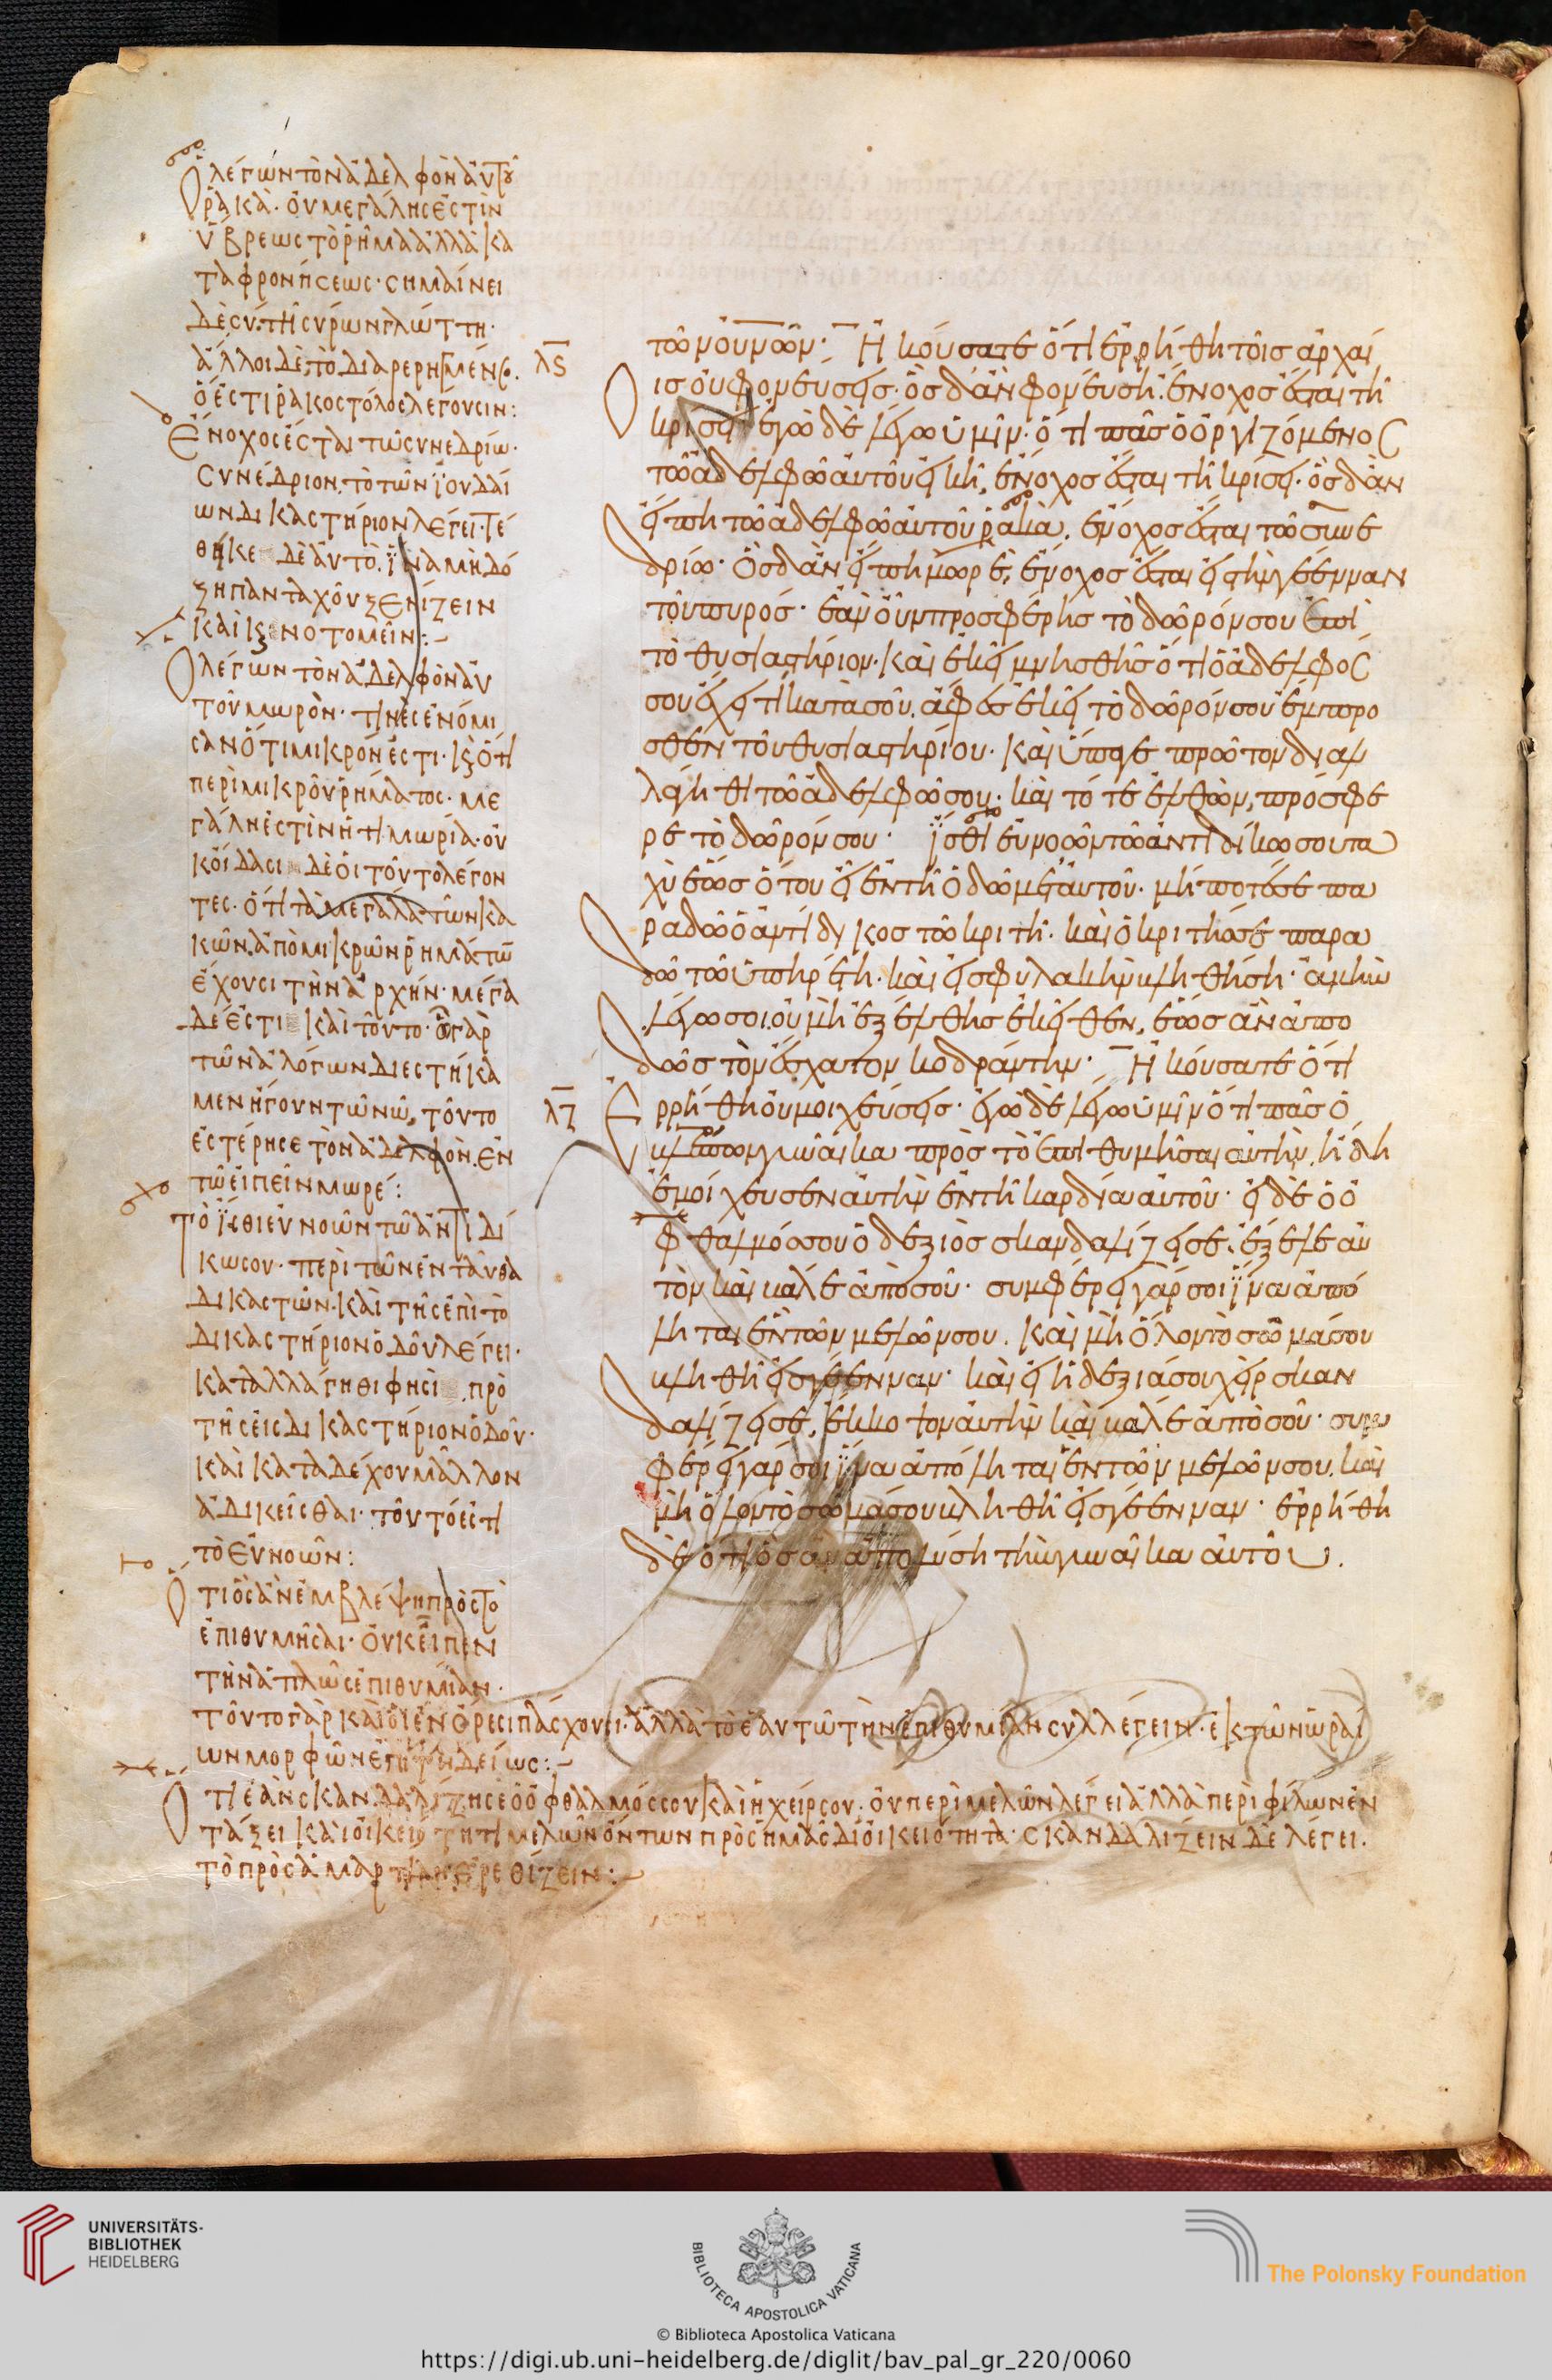 Ὁ λέγων τὸν ἀδελφὸν αὐτοῦ
ῥακά· οὐ μεγάλης ἐστὶν
ὕβρεως τὸ ῥῆμα ἀλλὰ κα
ταφρονήσεως· σημαίνει
δὲ συ· τῆ σύρων γλώττη·
ἄλλοι δὲ, τὸ διαρερηγμένος.
ὅ ἐστι ῥάκος
λέγουσιν:
Ἔνοχος ἔσται τῶ συνεδρίω·
Συνέδριον, τὸ τῶν ἰουδαί
ων δικαστήριον λέγει· τέ
θηκε δὲ αὐτὸ, ἵνα μὴ δό
ξη πανταχοῦ ξενίζειν
καὶ καινοτομεῖν:
Ὁ λέγων τὸν ἀδελφὸν αὐ
τοῦ μωρὸν· τινὲς ἐνόμι
σαν ὅτι μικρόν ἐστι· καὶ ὅτι
περὶ μικροῦ ῥήματος· με
γάλη ἐστὶν ἡ τιμωρία· οὐ
κ οἴδασι δὲ οἱ τοῦτο λέγον
τες· ὅτι τὰ μεγάλα τῶν κα
κῶν, ἀπὸ μικρῶν ῥημάτων
ἔχουσι τὴν ἀρχήν· μέγα
δέ ἐστι καὶ τοῦτο· ὧ γὰρ
τῶν ἀλόγων διεστήκα
μεν ἤγουν τῶ νῶ, τοῦτο
ἐστέρησε τὸν ἀδελφὸν, ἐν
τῶ εἰπεῖν μωρέ:
Τὸ ἴσθι εὐνοῶν τῶ ἀντιδί
κω σου· περὶ τῶν ἐνταῦθα
δικαστῶν· καὶ τῆς ἐπὶ τὸ
δικαστήριον ὁδοῦ λέγει·
καταλλάγηθι φησὶ πρὸ
τῆς εἰς δικαστήριον ὁδοῦ·
καὶ καταδέχου μᾶλλον
ἀδικεῖσθαι· τοῦτό ἐστι
τὸ εὐνοῶν:
Ὅτι ὃς ἂν ἐμβλέψη πρὸς τὸ
ἐπιθυμῆσαι· οὐκ εἶπεν
τὴν ἁπλῶς ἐπιθυμίαν·
τοῦτο γὰρ καὶ οἱ ἐν ὄρεσι πάσχουσι· ἀλλὰ τὸ ἑαυτῶ τὴν ἐπιθυμίαν συλλέγειν· ἐκ τῶν ὡραί
ων μορφῶν ἐπιτηδείως:
Ὅτι ἐὰν σκανδαλίζη σε ὁ ὀφθαλμός σου καὶ ἡ χείρ σου· οὐ περὶ μελῶν λέγει ἀλλὰ περὶ φίλων ἐν
τάξει καὶ οἰκειότητι μελῶν ὄντων πρὸς ἡμᾶς δι οἰκειότητα· σκανδαλίζειν δὲ λέγει·
τὸ πρὸς ἁμαρτίαν ἐρεθίζειν:
τῶν οὐρανῶν· Ἠκούσατε ὅτι ἐρρήθη τοῖς ἀρχαί
λς
οις οὐ φονεύσεις· ὃς δ᾽ ἂν φονεύση· ἔνοχος ἔσται τῆ
κρίσει· ἐγὼ δὲ λέγω ὑμῖν· ὅτι πᾶς ὁ ὀργιζόμενος
τῶ ἀδελφῶ αὐτοῦ εἰκῆ, ἔνοχος ἔσται τῆ κρίσει· ὃς δ᾽ ἂν
εἴπη τῶ ἀδελφῶ αὐτοῦ ῥακὰ, ἔνοχος ἔσται τῶ συνε
δρίω· Ὃς δ᾽ ἂν εἴπη μωρέ, ἔνοχος ἔσται εἰς τὴν γέενναν
τοῦ πυρός· ἐὰν οὖν προσφέρης τὸ δῶρόν σου ἐπὶ
τὸ θυσιαστήριον· κἀκεῖ μνησθῆς ὅτι ὁ ἀδελφός
σου ἔχει τι κατὰ σοῦ, ἄφες ἐκεῖ τὸ δῶρόν σου ἔμπρο
σθεν τοῦ θυσιαστηρίου· καὶ ὕπαγε πρῶτον διαλ
λάγηθι τῶ ἀδελφῶ σου· καὶ τότε ἐλθὼν, πρόσφε
ρε τὸ δῶρόν σου· ἴσθι εὐνοῶν τῶ ἀντιδίκω σου τα
χὺ ἕως ὅτου εἶ ἐν τῆ ὁδῶ μετ᾽ αὐτοῦ· μήποτέ σε πα
ραδῶ ὁ ἀντίδικος τῶ κριτῆ· καὶ ὁ κριτής σε παρα
δῶ τῶ ὑπηρέτη· καὶ εἰς φυλακὴν βληθήση· ἀμὴν
λέγω σοι, οὐ μὴ ἐξέλθης ἐκεῖθεν, ἕως ἂν ἀπο
δῶς τὸν ἔσχατον κοδράντην· Ἠκούσατε ὅτι
λζ
Ἐρρήθη οὐ μοιχεύσεις· ἐγὼ δὲ λέγω ὑμῖν ὅτι πᾶς ὁ
βλέπων γυναῖκα πρὸς τὸ ἐπιθυμῆσαι αὐτὴν, ἤδη
ἐμοίχευσεν αὐτὴν ἐν τῆ καρδία αὐτοῦ· εἰ δὲ ὁ ὀ
φθαλμός σου ὁ δεξιὸς σκανδαλίζει σε, ἔξελε αὐ
τὸν καὶ βάλε ἀπὸ σοῦ· συμφέρει γάρ σοι ἵνα ἀπό
ληται ἓν τῶν μελῶν σου. καὶ μὴ ὅλον τὸ σῶμά σου
βληθῆ εἰς γέενναν· καὶ εἰ ἡ δεξιά σοι χεὶρ σκαν
δαλίζει σε, ἔκκοψον αὐτὴν καὶ βάλε ἀπὸ σοῦ· συμ
φέρει γάρ σοι ἵνα ἀπόληται ἓν τῶν μελῶν σου. καὶ
μὴ ὅλον τὸ σῶμά σου βληθῆ εἰς γέενναν· ἐρρήθη
δὲ ὅτι ὃς ἂν ἀπολύση τὴν γυναῖκα αὐτοῦ.
UNIVERSITÄTS-
BIBLIOTHEK
HEIDELBERG
BIBLIOTECA APOSTOLICA VATICANA
The Polonsky Foundation
© Biblioteca Apostolica Vaticana
https://digi.ub.uni-heidelberg.de/diglit/bav_pal_gr_220/0060